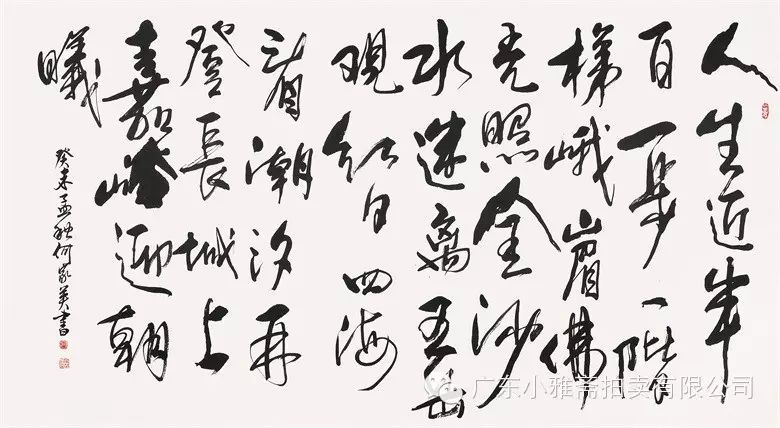 人生近半
百一步一階
梯峨嵋佛
光照金沙
水迷离五岳
观红日四海
看潮汐再
登長城上
嘉峪迎朝
曦
癸未孟秋何家英書
广东小雅斋拍卖有限公司